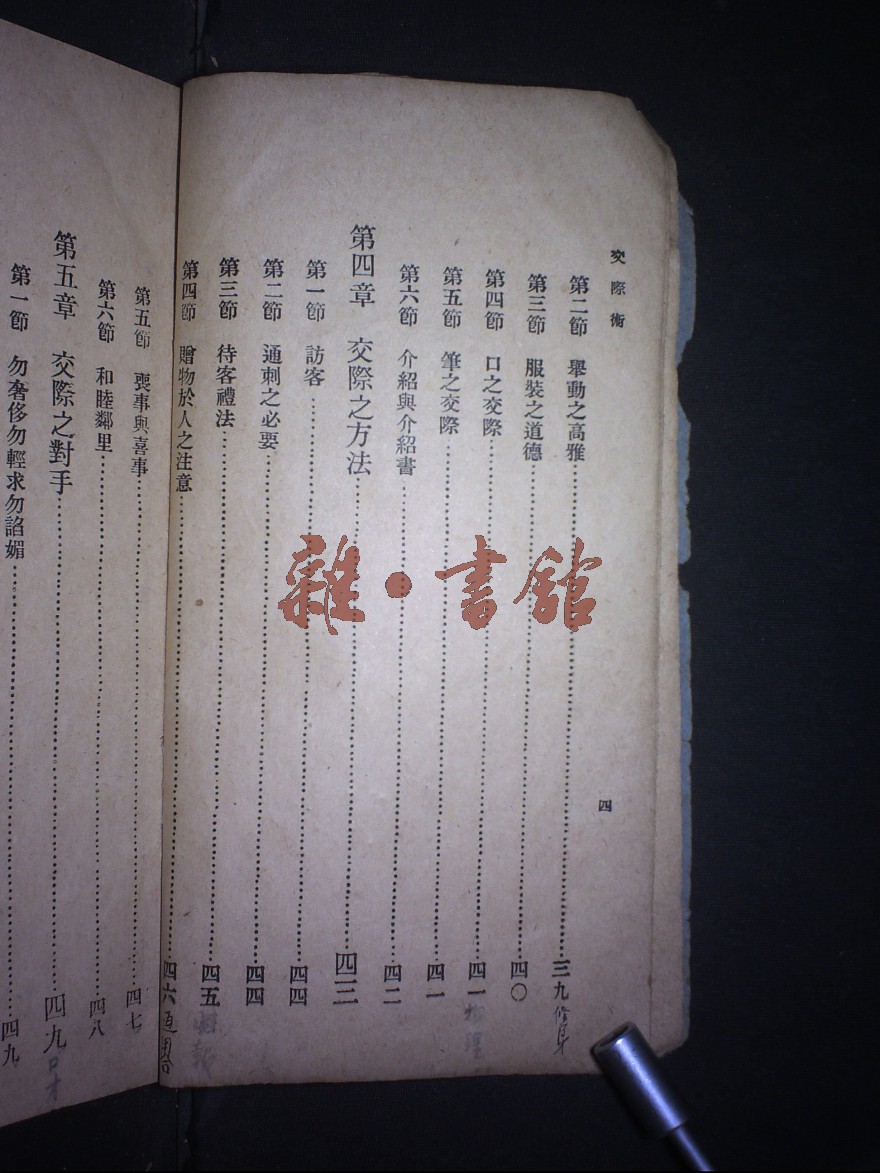 交際術
四
第二節 舉動之高雅……三九 修身
第三節 服裝之道德……四〇
第四節 口之交際……四一 物理
第五節 筆之交際……四一
第六節 介紹與介紹書……四二
第四章 交際之方法……四三
第一節 訪客……四四
第二節 通刺之必要……四四
第三節 待客禮法……四五
第四節 贈物於人之注意……四六
第五節 喪事與喜事……四七
第六節 和睦鄰里……四八
第五章 交際之對手……四九 口才
第一節 勿奢侈勿輕求勿諂媚……四九
雜·書館